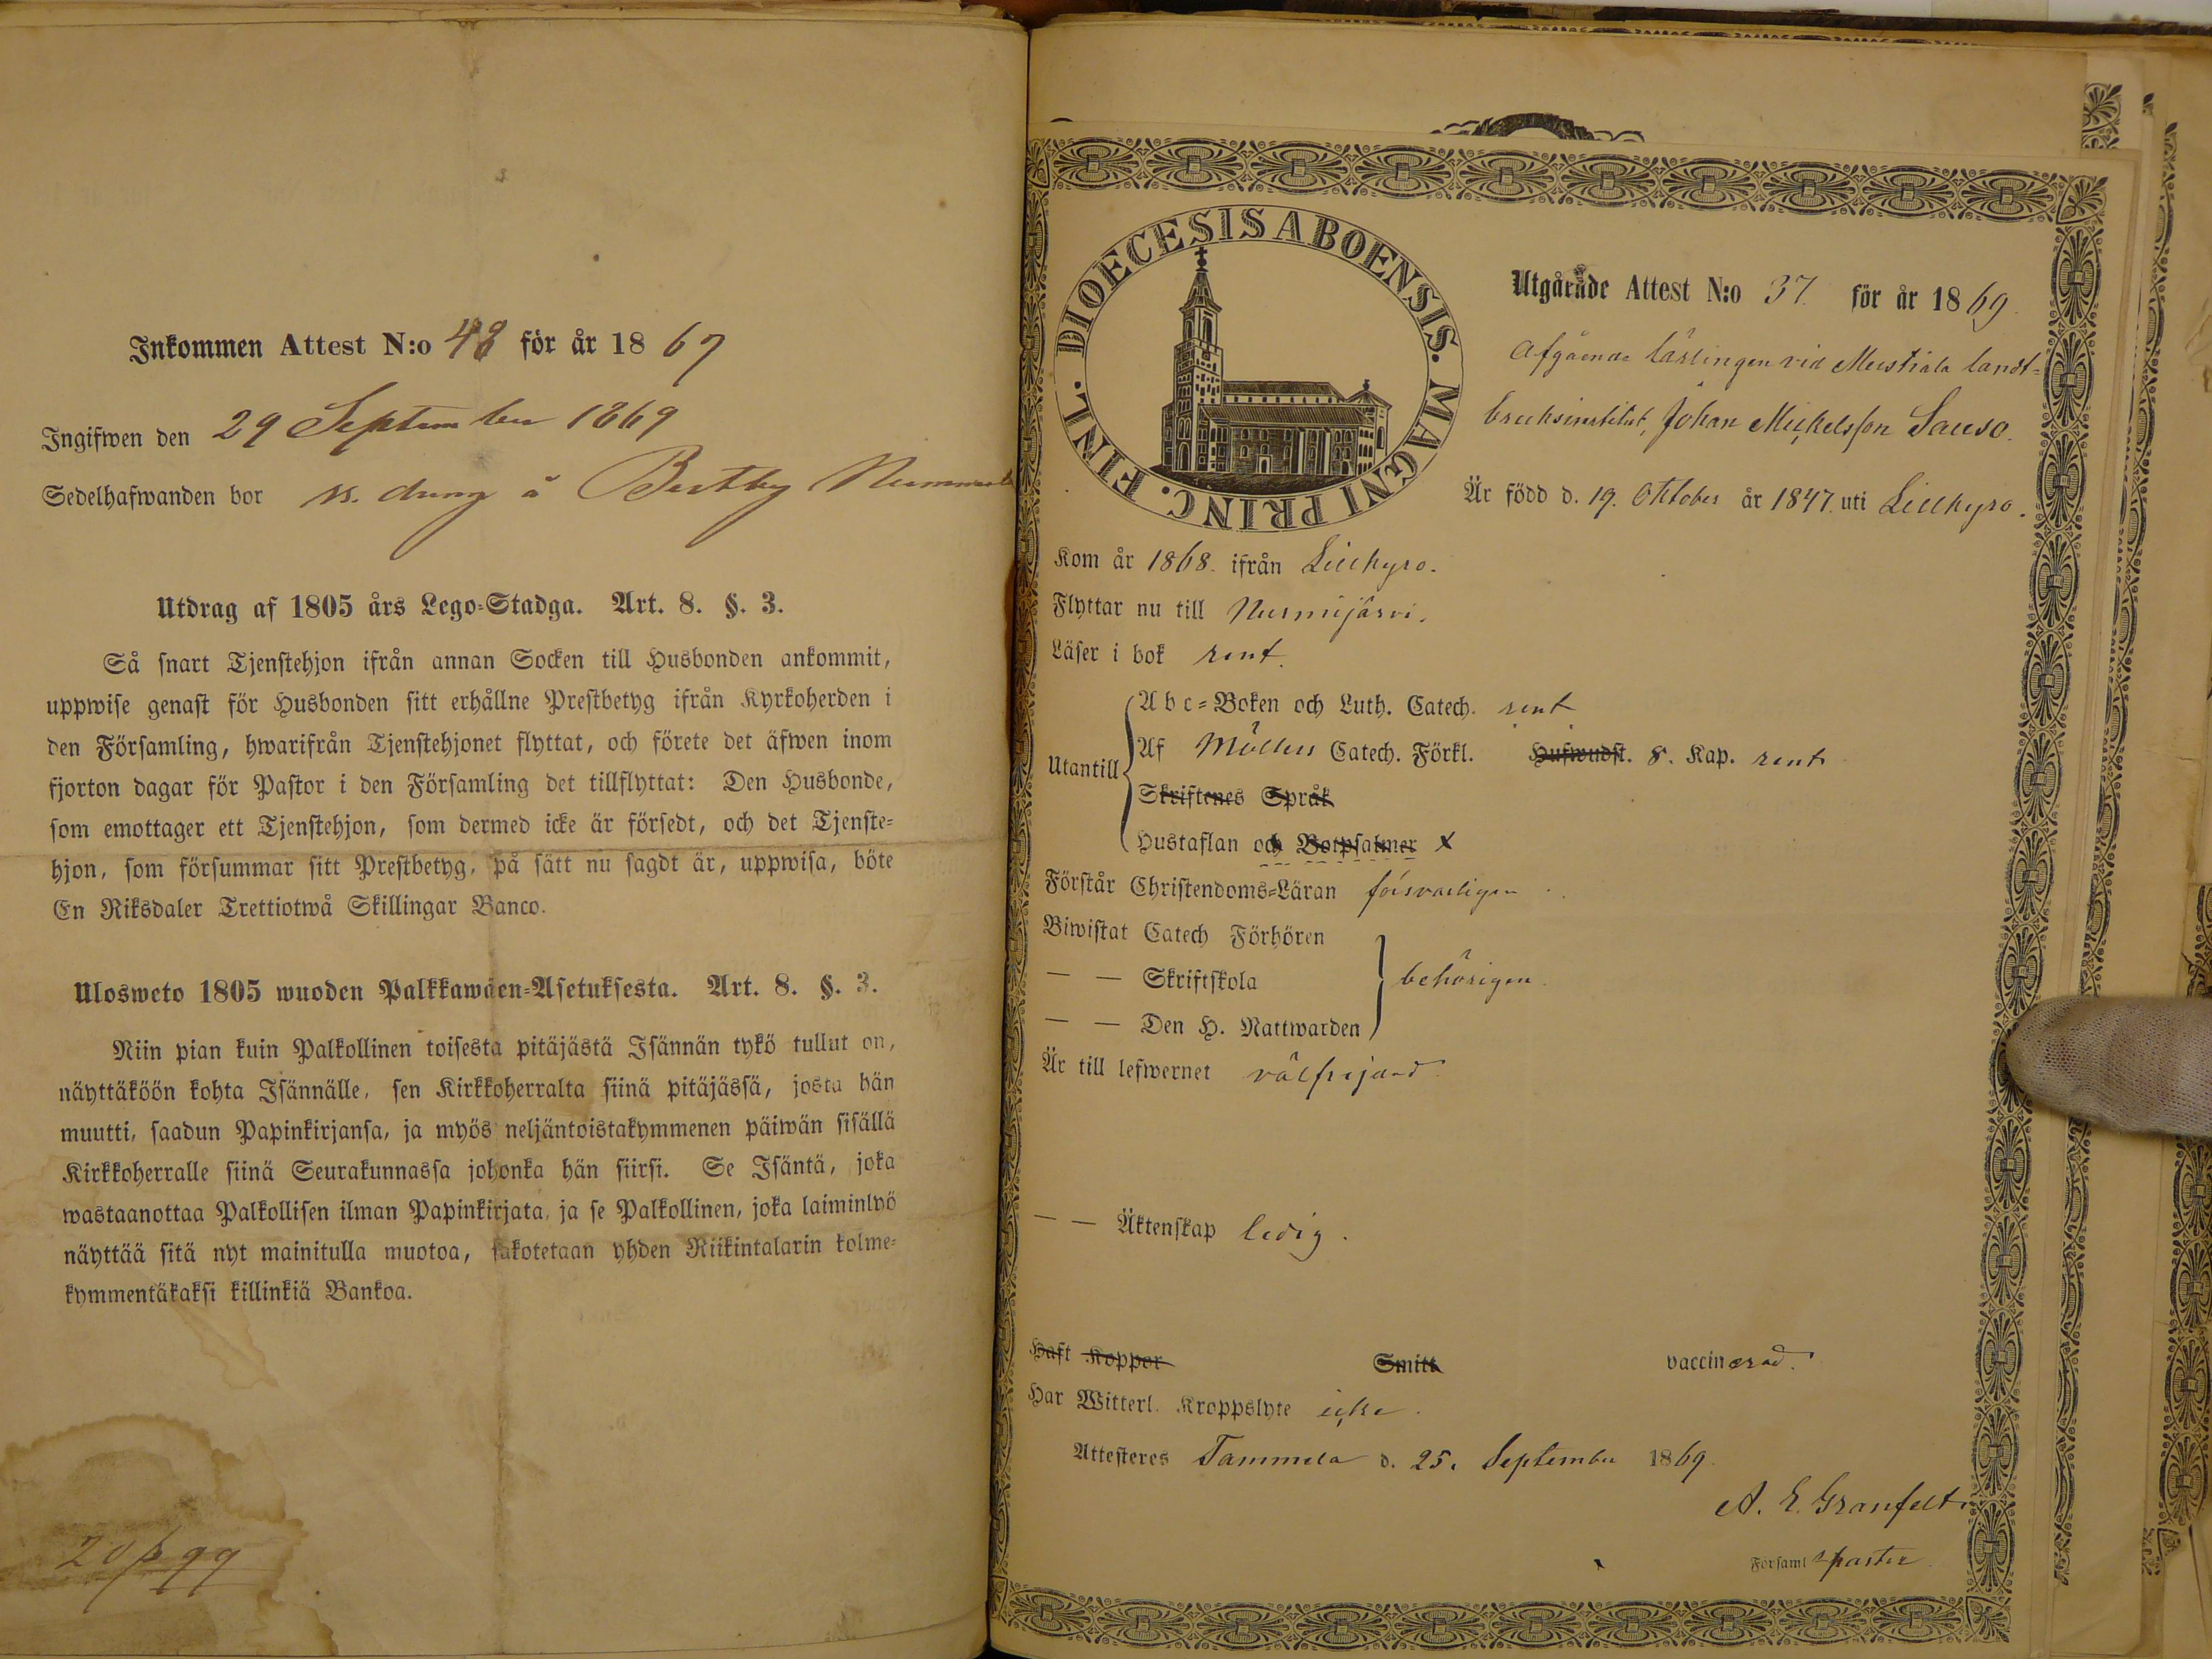 Inkommen Attest N:o 48 för år 1867
Ingifwen den 29 September 1869
Sedelhafwanden bor ss. dräng å
Utdrag af 1805 års Lego-Stadga. Art. 8. §. 3.
Så snart Tjenstehjon ifrån annan Socken till Husbonden ankommit,
uppwise genast för Husbonden sitt erhållne Prestbetyg ifrån Kyrkoherden i
den Församling, hwarifrån Tjenstehjonet flyttat, och förete det äfwen inom
fjorton dagar för Pastor i den Församling det tillflyttat: Den Husbonde,
som emottager ett Tjenstehjon, som dermed icke är försedt, och det Tjenste-
hjon, som försummar sitt Prestbetyg, på sätt nu sagdt är, uppwisa, böte
En Riksdaler Trettiotwå Skillingar Banco.
Ulosweto 1805 wuoden Palkkawäen-Asetuksesta. Art. 8. §. 3.
Niin pian kuin Palkollinen toisesta pitäjästä Isännän tykö tullut on,
näyttäköön kohta Isännälle, sen Kirkkoherralta siinä pitäjässä, josta hän
muutti, saadun Papinkirjansa, ja myös neljäntoistakymmenen päiwän sisällä
Kirkkoherralle siinä Seurakunnassa johonka hän siirsi. Se Isäntä, joka
wastaanottaa Palkollisen ilman Papinkirjata, ja se Palkollinen, joka laiminlyö
näyttää sitä nyt mainitulla muotoa, sakotetaan yhden Riikintalarin kolme-
kymmentäkaksi killinkiä Bankoa.
DIOECESIS ABOENSIS. MAGNI PRINC. FINL.
Utgående Attest N:o 37. för år 1869.
Afgående lärlingen vid Mustiala landt-
bruksinstitut, Johan Mickelsson Sauso.
Är född d. 19. Oktober år 1847. uti Lillkyro.
Kom år 1868. ifrån Lillkyro.
Flyttar nu till Nurmijärvi.
Läser i bok rent.
Utantill
Abc-Boken och Luth. Catech. rent
Af Möllers Catech. Förkl. Hufwudst. 8. Kap. rent
Skriftenes Språk
Hustaflan och Botpsalmer x
Förstår Christendoms-Läran försvarligen
Biwistat Catech Förhören
— — Skriftskola behörigen.
— — Den H. Nattwarden
Är till lefwernet välfrejdad
— — Äktenskap ledig.
Haft Koppor Smitt vaccinerad.
Har Witterl. Kroppslyte icke.
Attesteres Tammela d. 25. September 1869.
A. E. Granfelt.
Församl pastor.